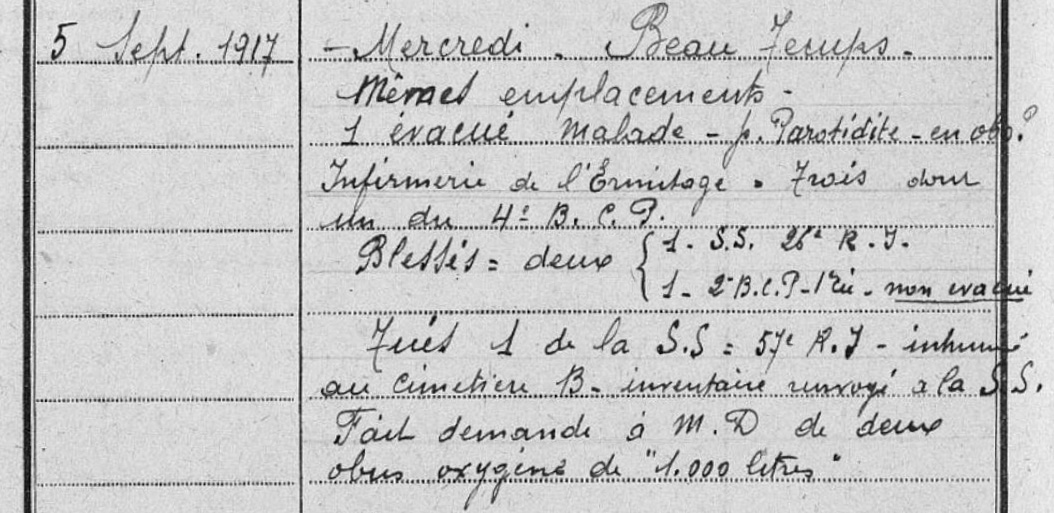 5 Sept. 1917 - Mercredi. Beau Temps -
Mêmes emplacements -
1 évacué malade - p. Parotidite - en obs.
Infirmerie de l'Ermitage = Trois dont
un du 4e B.C.P.
Blessés = deux { 1 - S.S. 26e R.I.
1 - 2e B.C.P - 1re Cie - non evacué
Tués 1 de la S.S = 57e R.I - inhumé
au cimetière B - inventaire renvoyé a la S.S.
Fait demande à M.D de deux
obus oxygène de "1.000 litres"